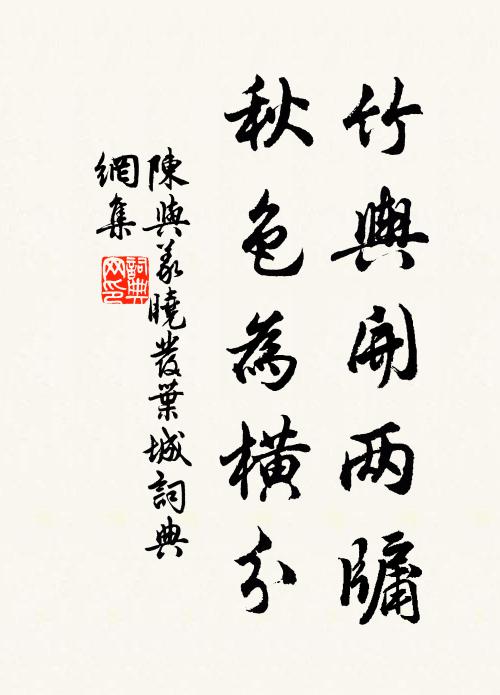 竹輿開两牖
秋色為橫分
陳與義曉發葉城詞典
網集
詞典
網印